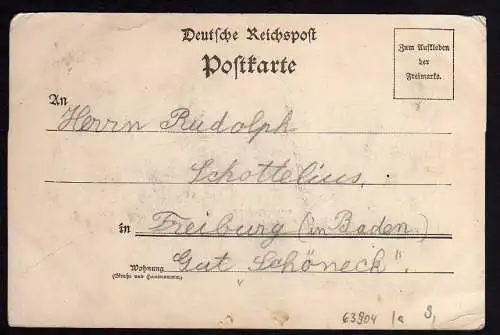 Deutsche Reichspost
Postkarte
Zum Aufkleben
der
Freimarke.
An
Herrn Rudolph
Schottelius,
in Freiburg (in Baden)
Wohnung „Gut Schöneck".
(Straße und Hausnummer)
63904 1a